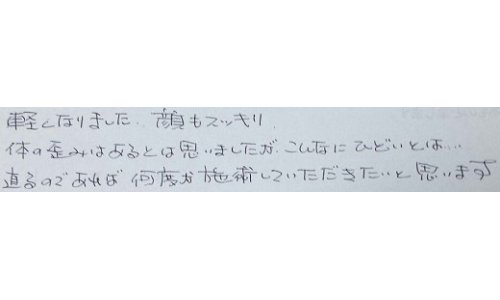 軽くなりました. 顔もスッキリ
体の歪みはあるとは思いましたが、こんなにひどいとは...
直るのであれば 何度か施術していただきたいと思います